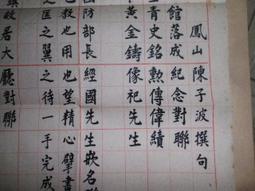 鳳山陳子波撰句
館落成紀念對聯
青史銘勳傳偉績
黃金鑄像祀先生
國防部長經國先生嵌名聯
也用也望精心擘畫
之匡之翼之待一手完成
若大廳對聯